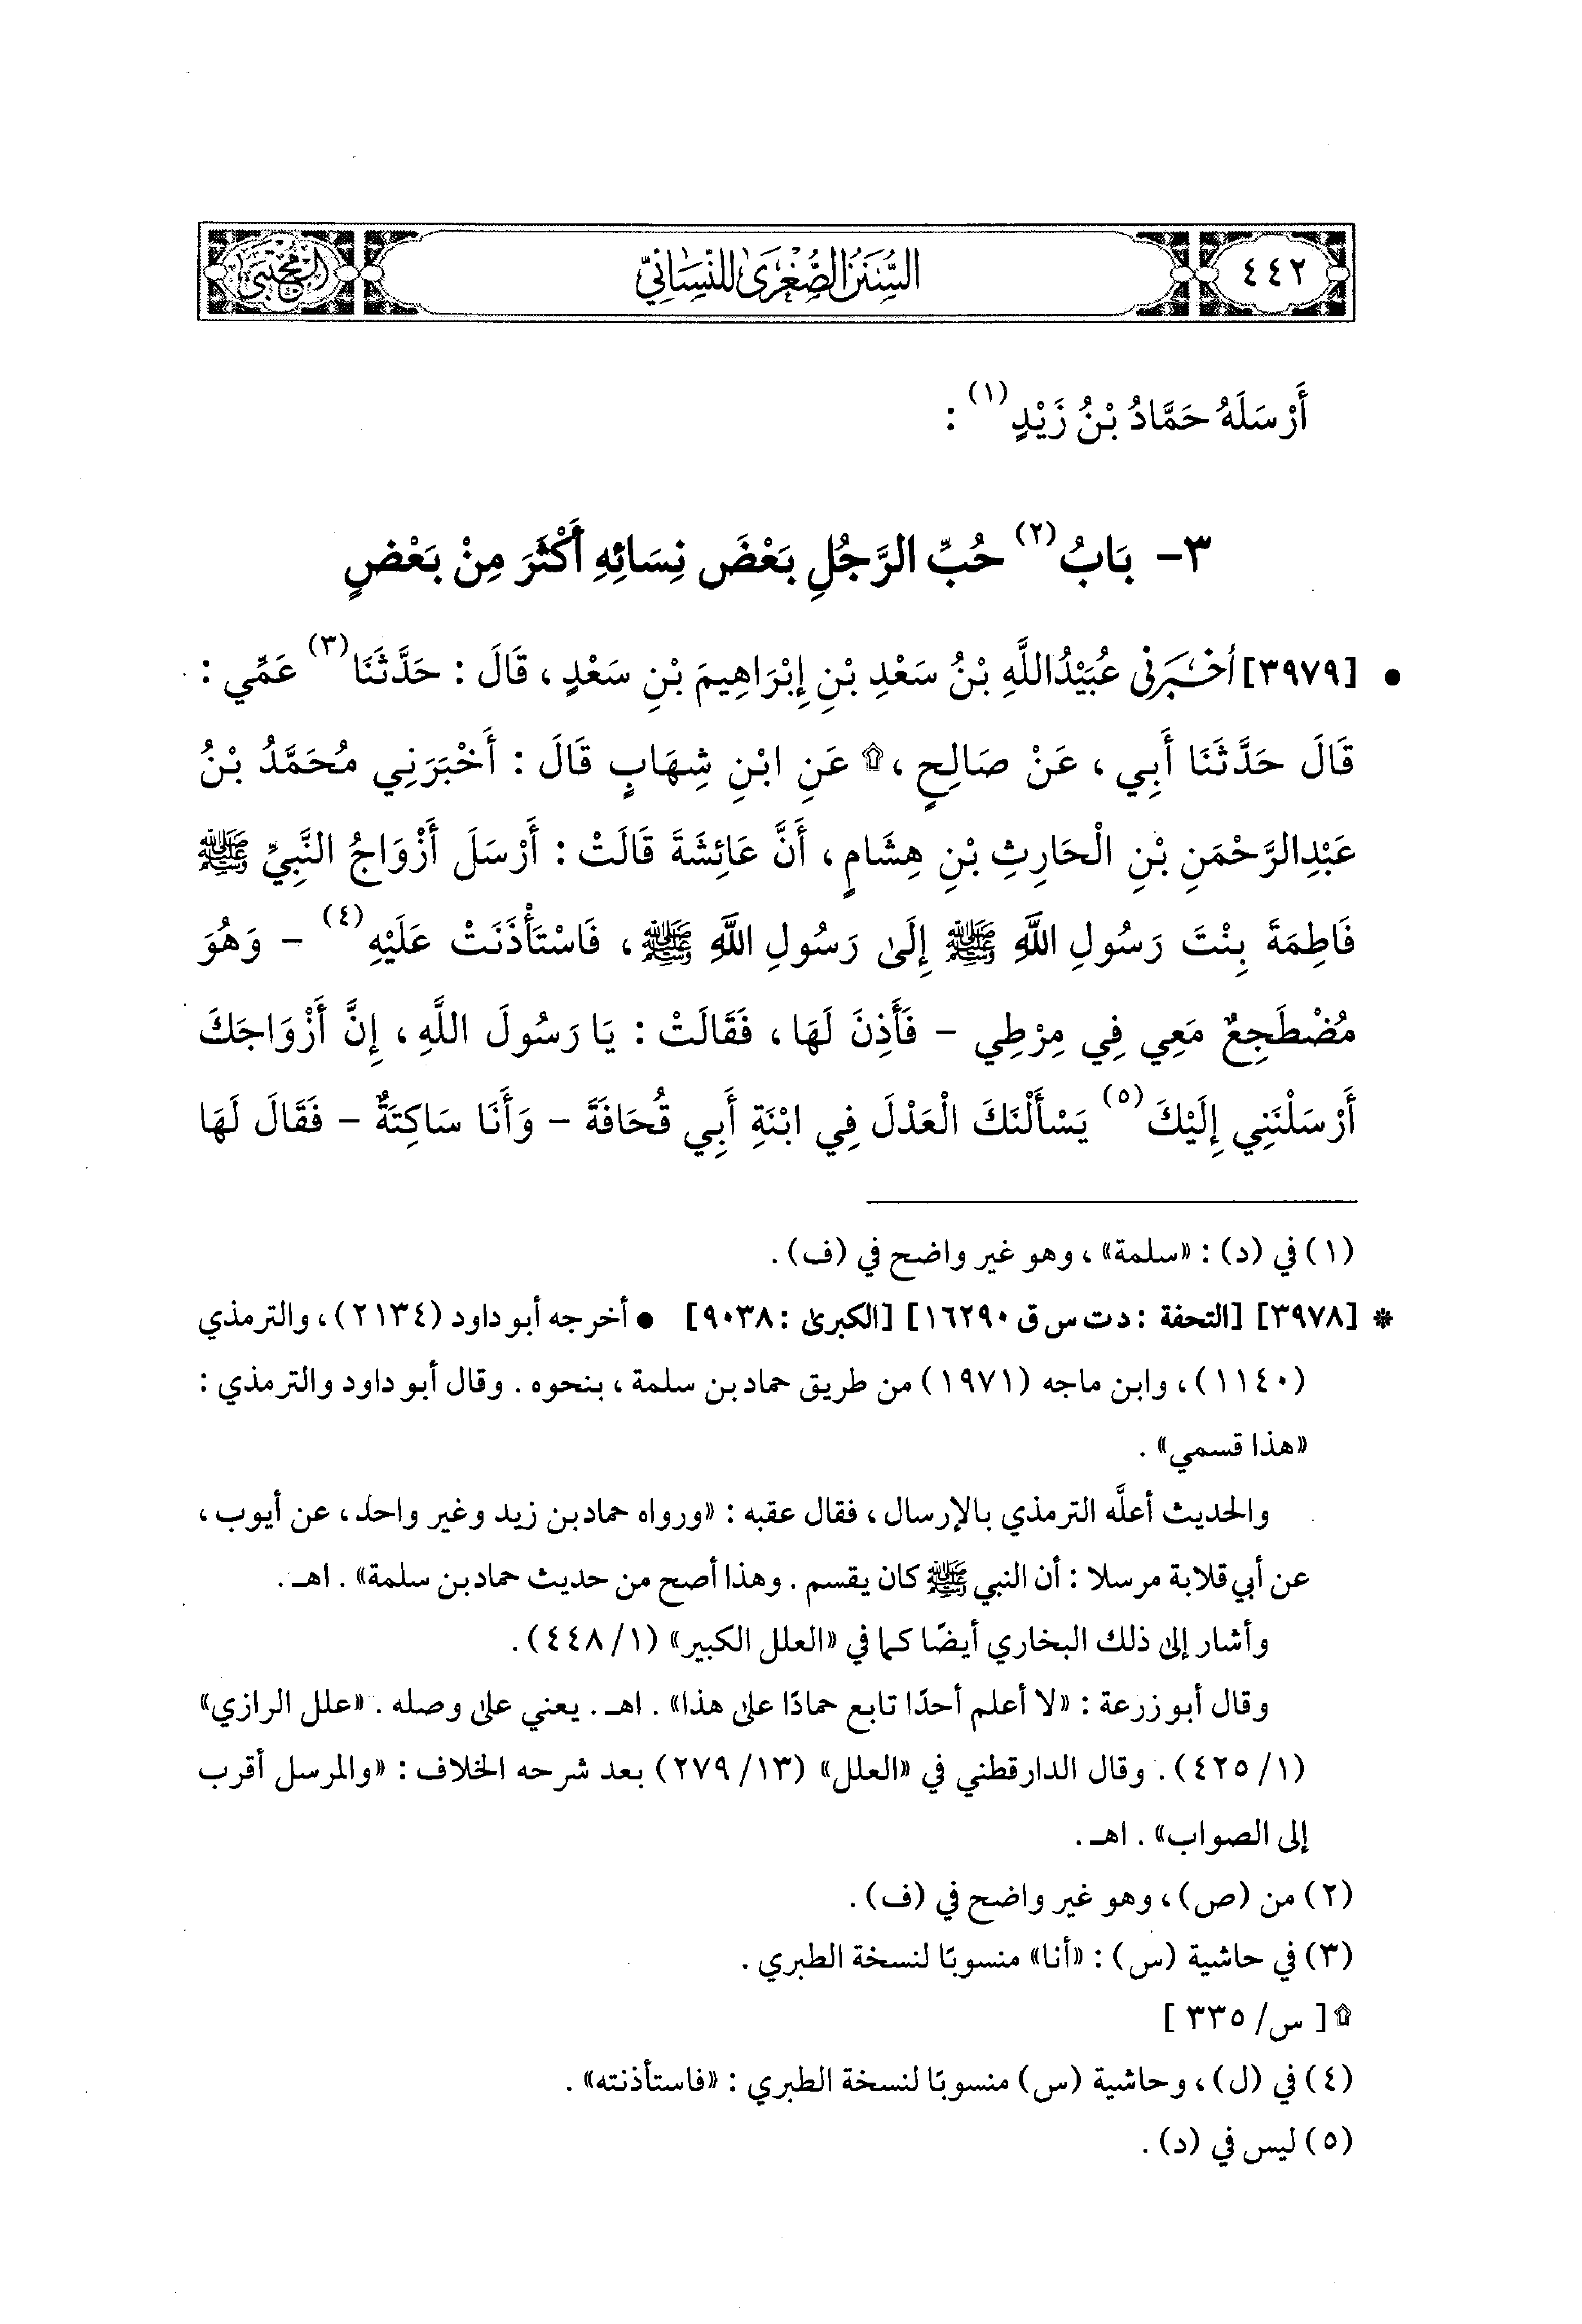 ٤٤٢
السُّنَنُ الصُّغْرَىٰ لِلنَّسَائِيِّ
المجتبى
أَرْسَلَهُ حَمَّادُ بْنُ زَيْدٍ(١) :
٣- بَابُ(٢) حُبِّ الرَّجُلِ بَعْضَ نِسَائِهِ أَكْثَرَ مِنْ بَعْضٍ
• [٣٩٧٩] أَخْبَرَنِي عُبَيْدُاللَّهِ بْنُ سَعْدِ بْنِ إِبْرَاهِيمَ بْنِ سَعْدٍ ، قَالَ : حَدَّثَنَا(٣) عَمِّي :
قَالَ حَدَّثَنَا أَبِي ، عَنْ صَالِحٍ ،۩ عَنِ ابْنِ شِهَابٍ قَالَ : أَخْبَرَنِي مُحَمَّدُ بْنُ
عَبْدِالرَّحْمَنِ بْنِ الْحَارِثِ بْنِ هِشَامٍ ، أَنَّ عَائِشَةَ قَالَتْ : أَرْسَلَ أَزْوَاجُ النَّبِيِّ ﷺ
فَاطِمَةَ بِنْتَ رَسُولِ اللَّهِ ﷺ إِلَىٰ رَسُولِ اللَّهِ ﷺ ، فَاسْتَأْذَنَتْ عَلَيْهِ(٤) - وَهُوَ
مُضْطَجِعٌ مَعِي فِي مِرْطِي - فَأَذِنَ لَهَا ، فَقَالَتْ : يَا رَسُولَ اللَّهِ ، إِنَّ أَزْوَاجَكَ
أَرْسَلْنَنِي إِلَيْكَ(٥) يَسْأَلْنَكَ الْعَدْلَ فِي ابْنَةِ أَبِي قُحَافَةَ - وَأَنَا سَاكِتَةٌ - فَقَالَ لَهَا
(١) في (د) : «سلمة» ، وهو غير واضح في (ف) .
* [٣٩٧٨] [التحفة : د ت س ق ١٦٢٩٠] [الكبرىٰ : ٩٠٣٨] • أخرجه أبو داود (٢١٣٤) ، والترمذي
(١١٤٠) ، وابن ماجه (١٩٧١) من طريق حماد بن سلمة ، بنحوه . وقال أبو داود والترمذي :
«هذا قسمي» .
والحديث أعلَّه الترمذي بالإرسال ، فقال عقبه : «ورواه حماد بن زيد وغير واحد ، عن أيوب ،
عن أبي قلابة مرسلا : أن النبي ﷺ كان يقسم . وهذا أصح من حديث حماد بن سلمة» . اهـ .
وأشار إلىٰ ذلك البخاري أيضًا كما في «العلل الكبير» (١/ ٤٤٨) .
وقال أبو زرعة : «لا أعلم أحدًا تابع حمادًا علىٰ هذا» . اهـ . يعني علىٰ وصله . «علل الرازي»
(١/ ٤٢٥) . وقال الدارقطني في «العلل» (١٣/ ٢٧٩) بعد شرحه الخلاف : «والمرسل أقرب
إلى الصواب» . اهـ .
(٢) من (ص) ، وهو غير واضح في (ف) .
(٣) في حاشية (س) : «أنا» منسوبًا لنسخة الطبري .
۩ [ س/ ٣٣٥ ]
(٤) في (ل) ، وحاشية (س) منسوبًا لنسخة الطبري : «فاستأذنته» .
(٥) ليس في (د) .